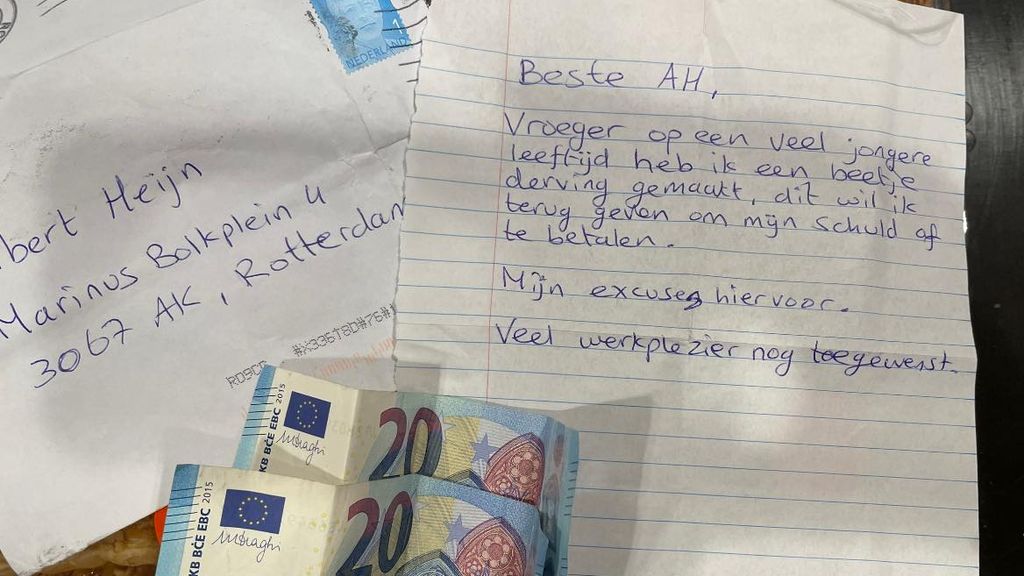 NEDERLAND
1
bert Heijn
Marinus Bolkplein 4
3067 AK, Rotterdam
Beste AH,
Vroeger op een veel jongere
leeftijd heb ik een beetje
derving gemaakt, dit wil ik
terug geven om mijn schuld af
te betalen.
Mijn excuses hiervoor.
Veel werkplezier nog toegewenst.
BCE EBC 2015
20
KB BČE EBC 2015
20